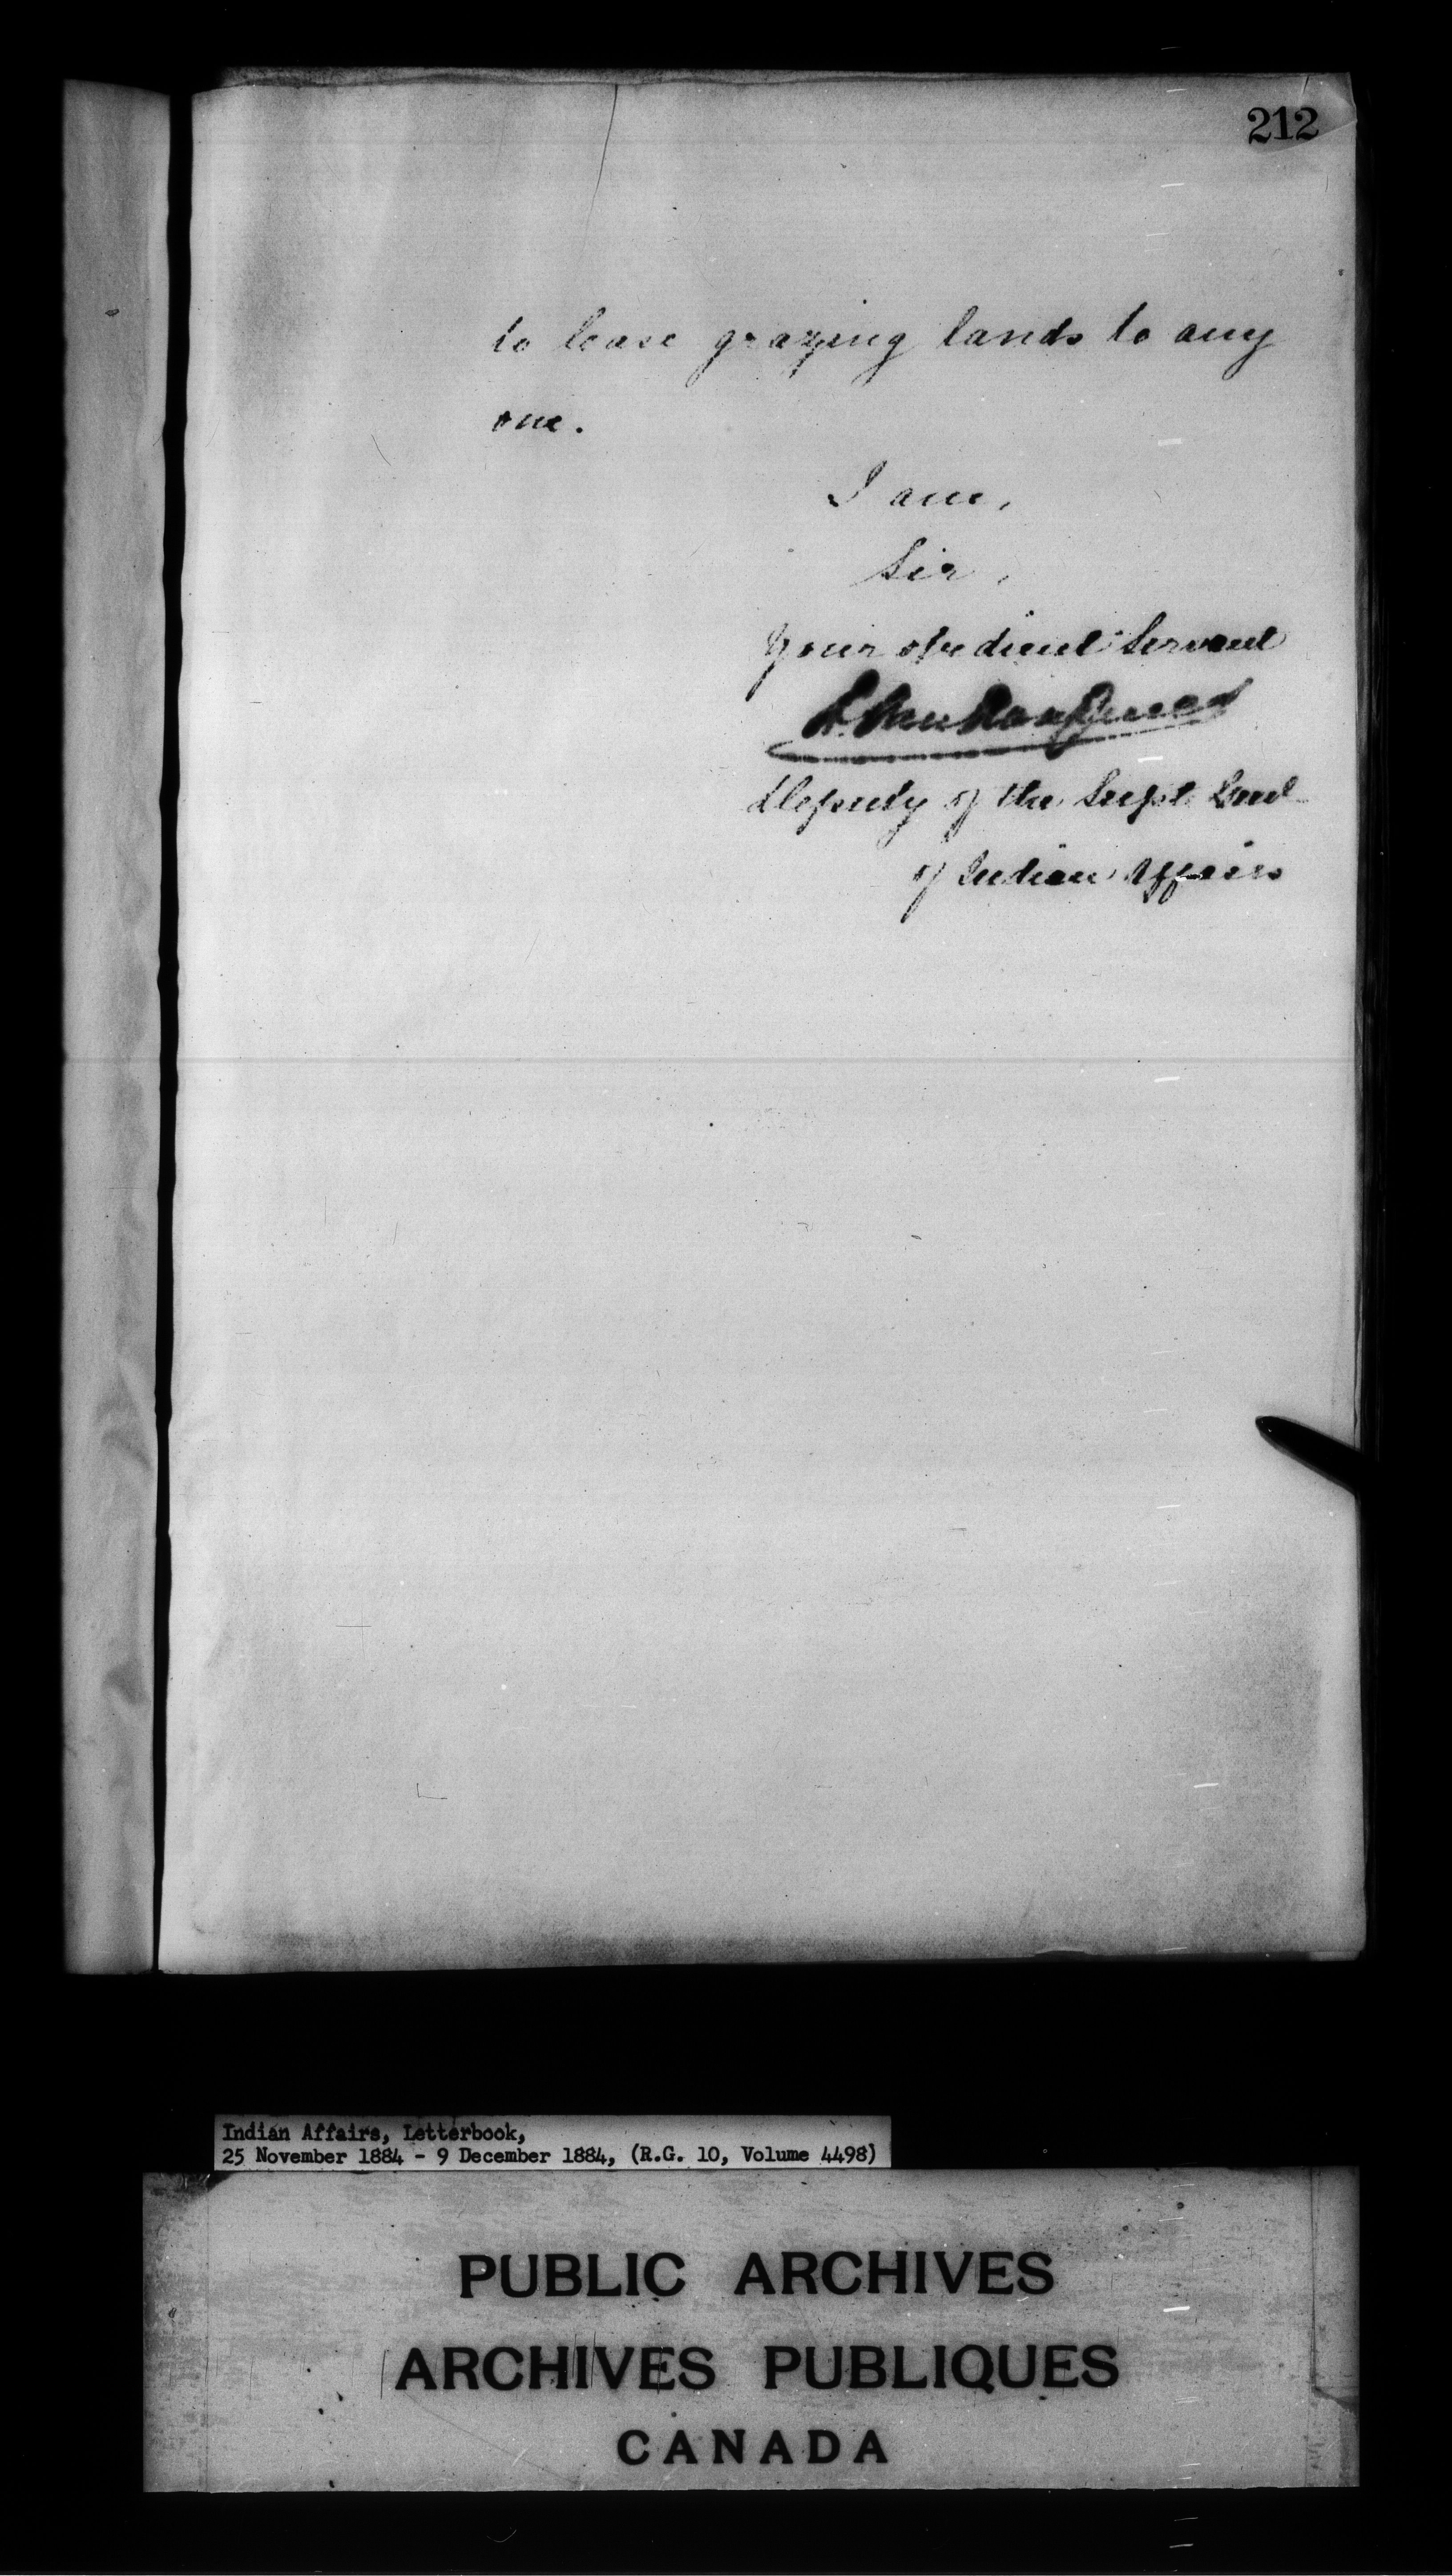 212
to lease grazing lands to any
one.
I am,
Sir,
Your obedient Servant
L. VanKoughnet
Deputy of the Supt Genl
of Indian Affairs
Indian Affairs, Letterbook,
25 November 1884 - 9 December 1884, (R.G. 10, Volume 4498)
PUBLIC ARCHIVES
ARCHIVES PUBLIQUES
CANADA